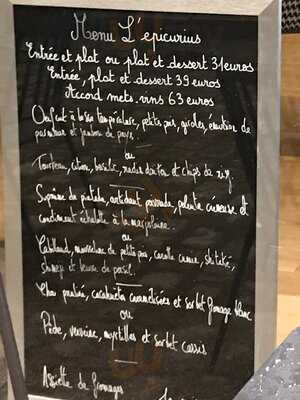 Menu L'epicurius
Entrée et plat ou plat et dessert 31euros
Entrée, plat et dessert 39 euros
Accord mets vins 63 euros
Oeuf cuit à basse température, petits pois, girolles, émulsion de
parmesan et jambon de pays.
ou
Tourteau, citron, basilic, radis daikon et chips de riz.
Suprême de pintade, croustillant, polenta crémeuse et
condiment échalotte à la marjolaine.
ou
Cabillaud, mousseline de petits pois, carotte, shitaké,
et beurre de persil.
Chou praliné, cacahuète caramélisées et sorbet fromage blanc
ou
Pêche, verveine, myrtilles et sorbet cassis
Assiette de fromages